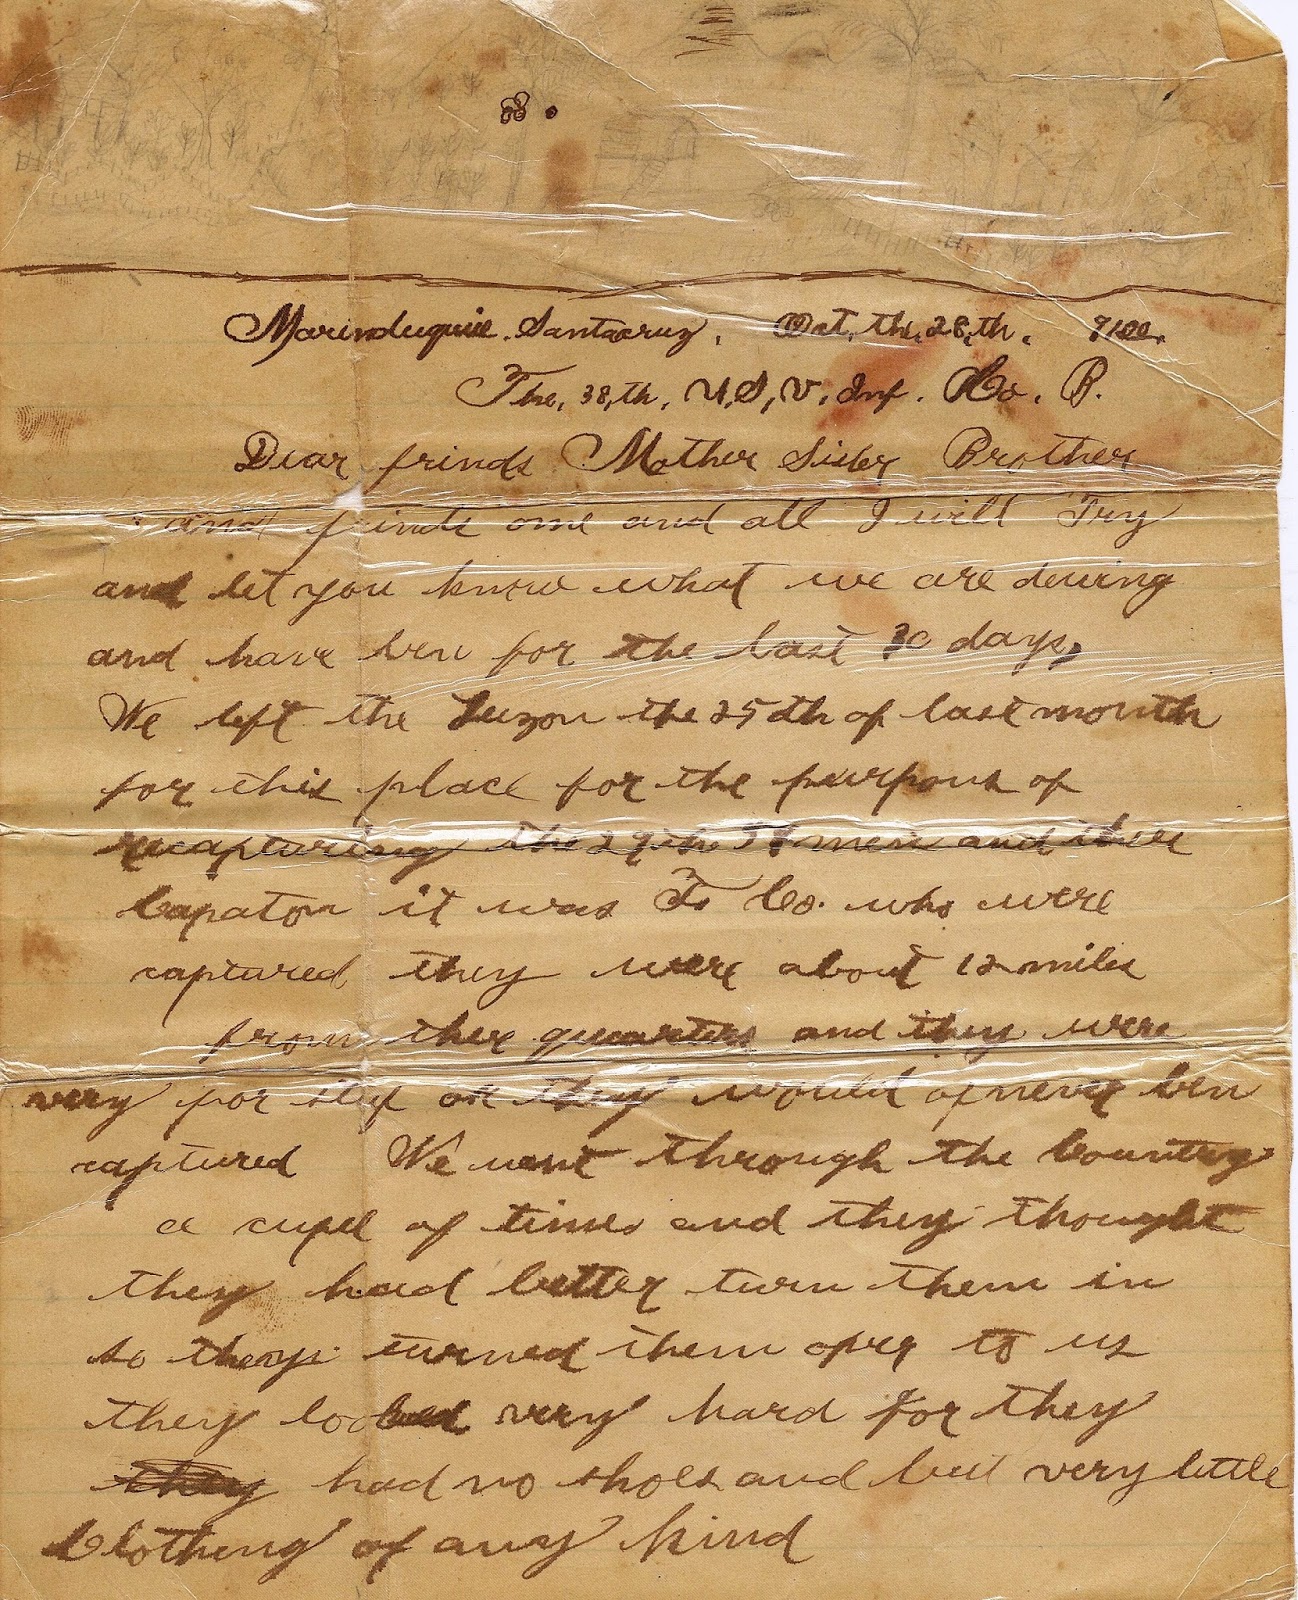 Marinduquie. Santacruz, Oct, th, 28, th. 
The, 38, th, U, S, V, Inf. Co. B.
Dear frinds Mother Sister Brother
and frinds one and all I will Try
and let you know what we are dewing
and have ben for the last 30 days,
We left the Luzon the 25th of last month
for this place for the purpous of
recapturing the 29th men and there
Capaton it was F. Co. who were
captured they were about 12 miles
from ther quarters and they were
very por they would of never ben
captured We went through the Country
a cupel of times and they thought
they had better turn them in
so they turned them over to us
they looked very hard for they
had no shoes and but very little
Clothing of any kind